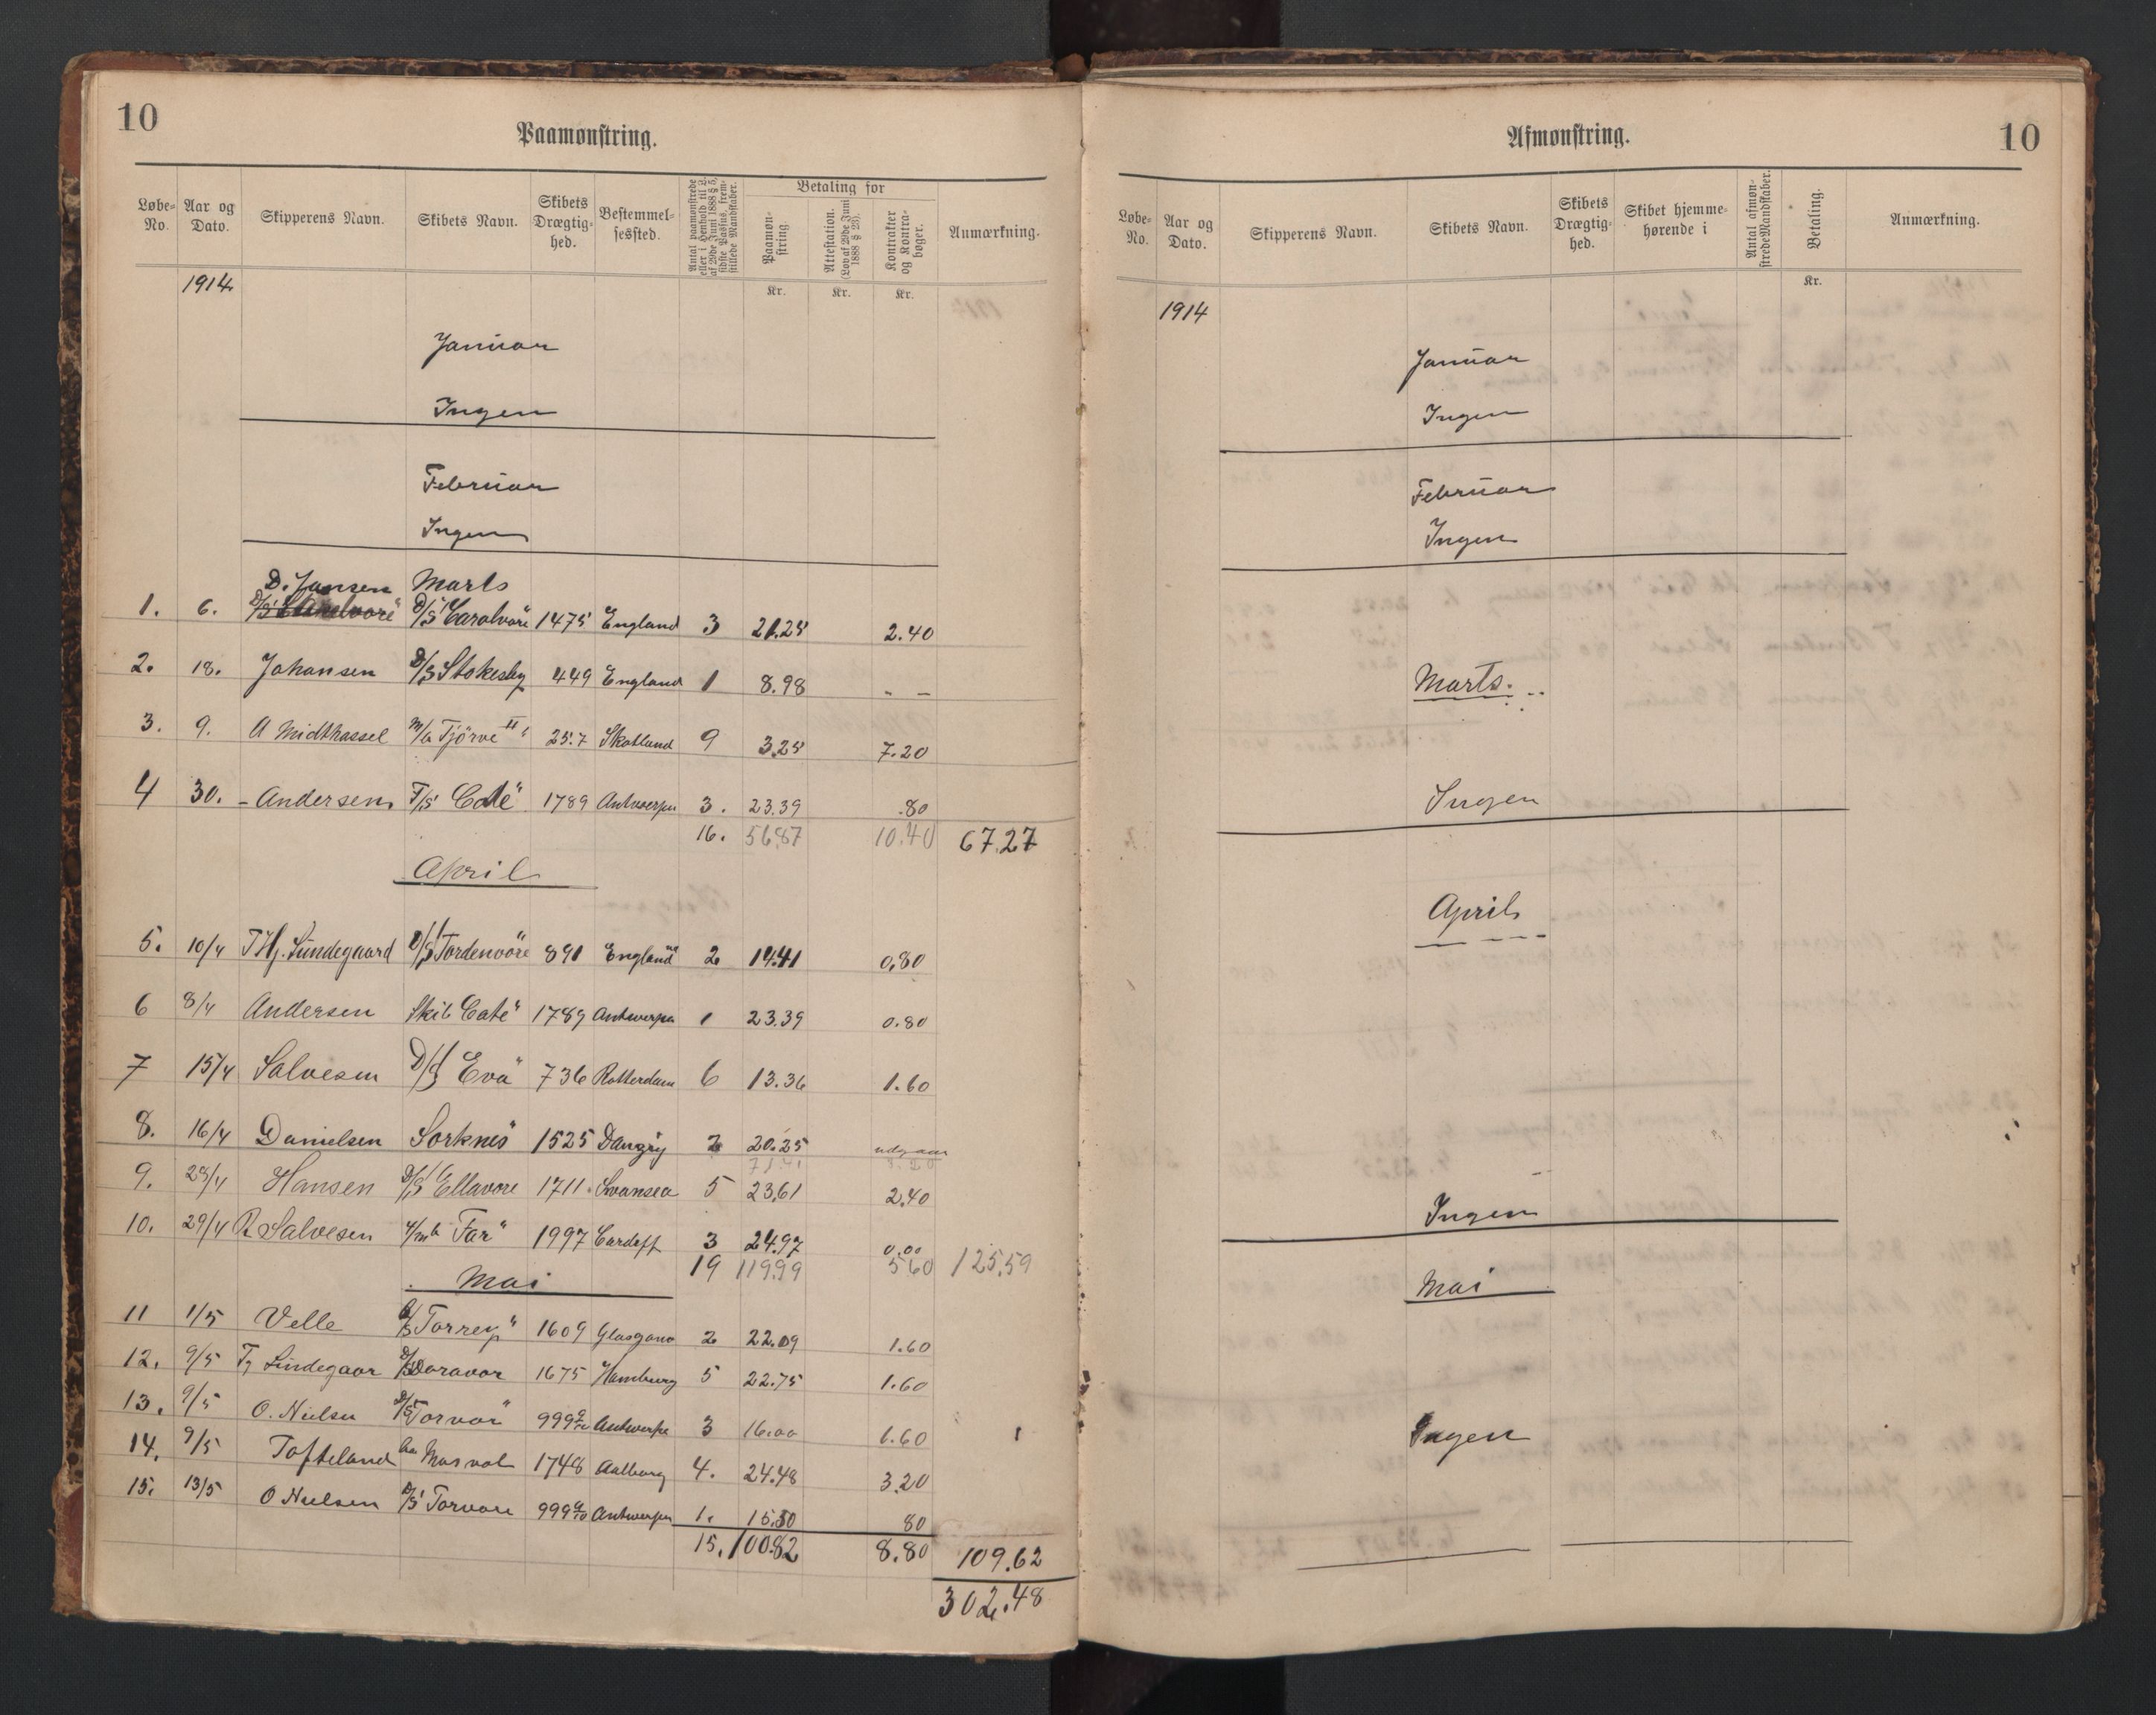 10
Paamønstring.
Løbe-No. Aar og Dato. Skipperens Navn. Skibets Navn. Skibets Drægtig-hed. Bestemmel-sessted. Antal paamønstrede eller i Henhold til L. af 29de Juni 1888 § 5, sidste Passus, frem-stillede Mandskaber. Betaling for Paamøn-string. Attestation. (Lov af 29de Juni 1888 § 23). Kontrakter og Kontra-bøger. Anmærkning.
Kr. Kr. Kr.
1914
Januar
Ingen
Februar
Ingen
D. Jansen Marts
1. 6. D/S Carolvore" 1475 England 3 21.25 2.40
2. 18. Johansen D/S Stokesby 449 England 1 8.98 " —
3. 9. A Midthassel M/k Tjörve II" 25.7 Skotland 9 3.25 7.20
4 30. - Andersen F/S Caté" 1789 Antwerpen 3. 23.39 .80
16. 56.87 10.40 67.27
April
5. 10/4 T Hj. Lundegaard D/S Tordenvore" 891 England 2 14.41 0,80
6 8/4 Andersen Skib Caté" 1789 Antwerpen 1 23.39 0.80
7 15/4 Salvesen D/S Eva" 736 Rotterdam 6 13.36 1.60
8. 16/4 Danielsen Sorknes" 1525 2 20.25 udgaar
9. 23/4 Hansen D/S Ellavore 1711 Svansea 5 23,61 2.40
10. 29/4 R Salvesen 4/m b Far" 1997 Cardiff 3 24.97 0.00
19 119.99 5 60 125.59
Mai
11 1/5 Velle D/S Torrey" 1609 Glasgow 2 22.09 1.60
12. 9/5 Tj Lindegaar D/S Doravor 1675 Hamburg 5 22.75 1.60
13. 9/5 O. Nielsen D/S Torvor" 999 9/10 Antwerpe 3 16.00 1.60
14. 9/5 Tofteland Masval 1748 Aalborg 4. 24.48 3.20
15. 13/5 O Nielsen D/S Torvore 999 9/10 Antwerpen 1. 15.50 80
15. 100.82 8.80 109.62
302.48
Afmønstring.
10
Løbe-No. Aar og Dato. Skipperens Navn. Skibets Navn. Skibets Drægtig-hed. Skibet hjemme-hørende i Antal afmøn-strede Mandskaber. Betaling. Anmærkning.
Kr.
1914
Januar
Ingen
Februar
Ingen
Marts.
Ingen
April
Ingen
Mai
Ingen